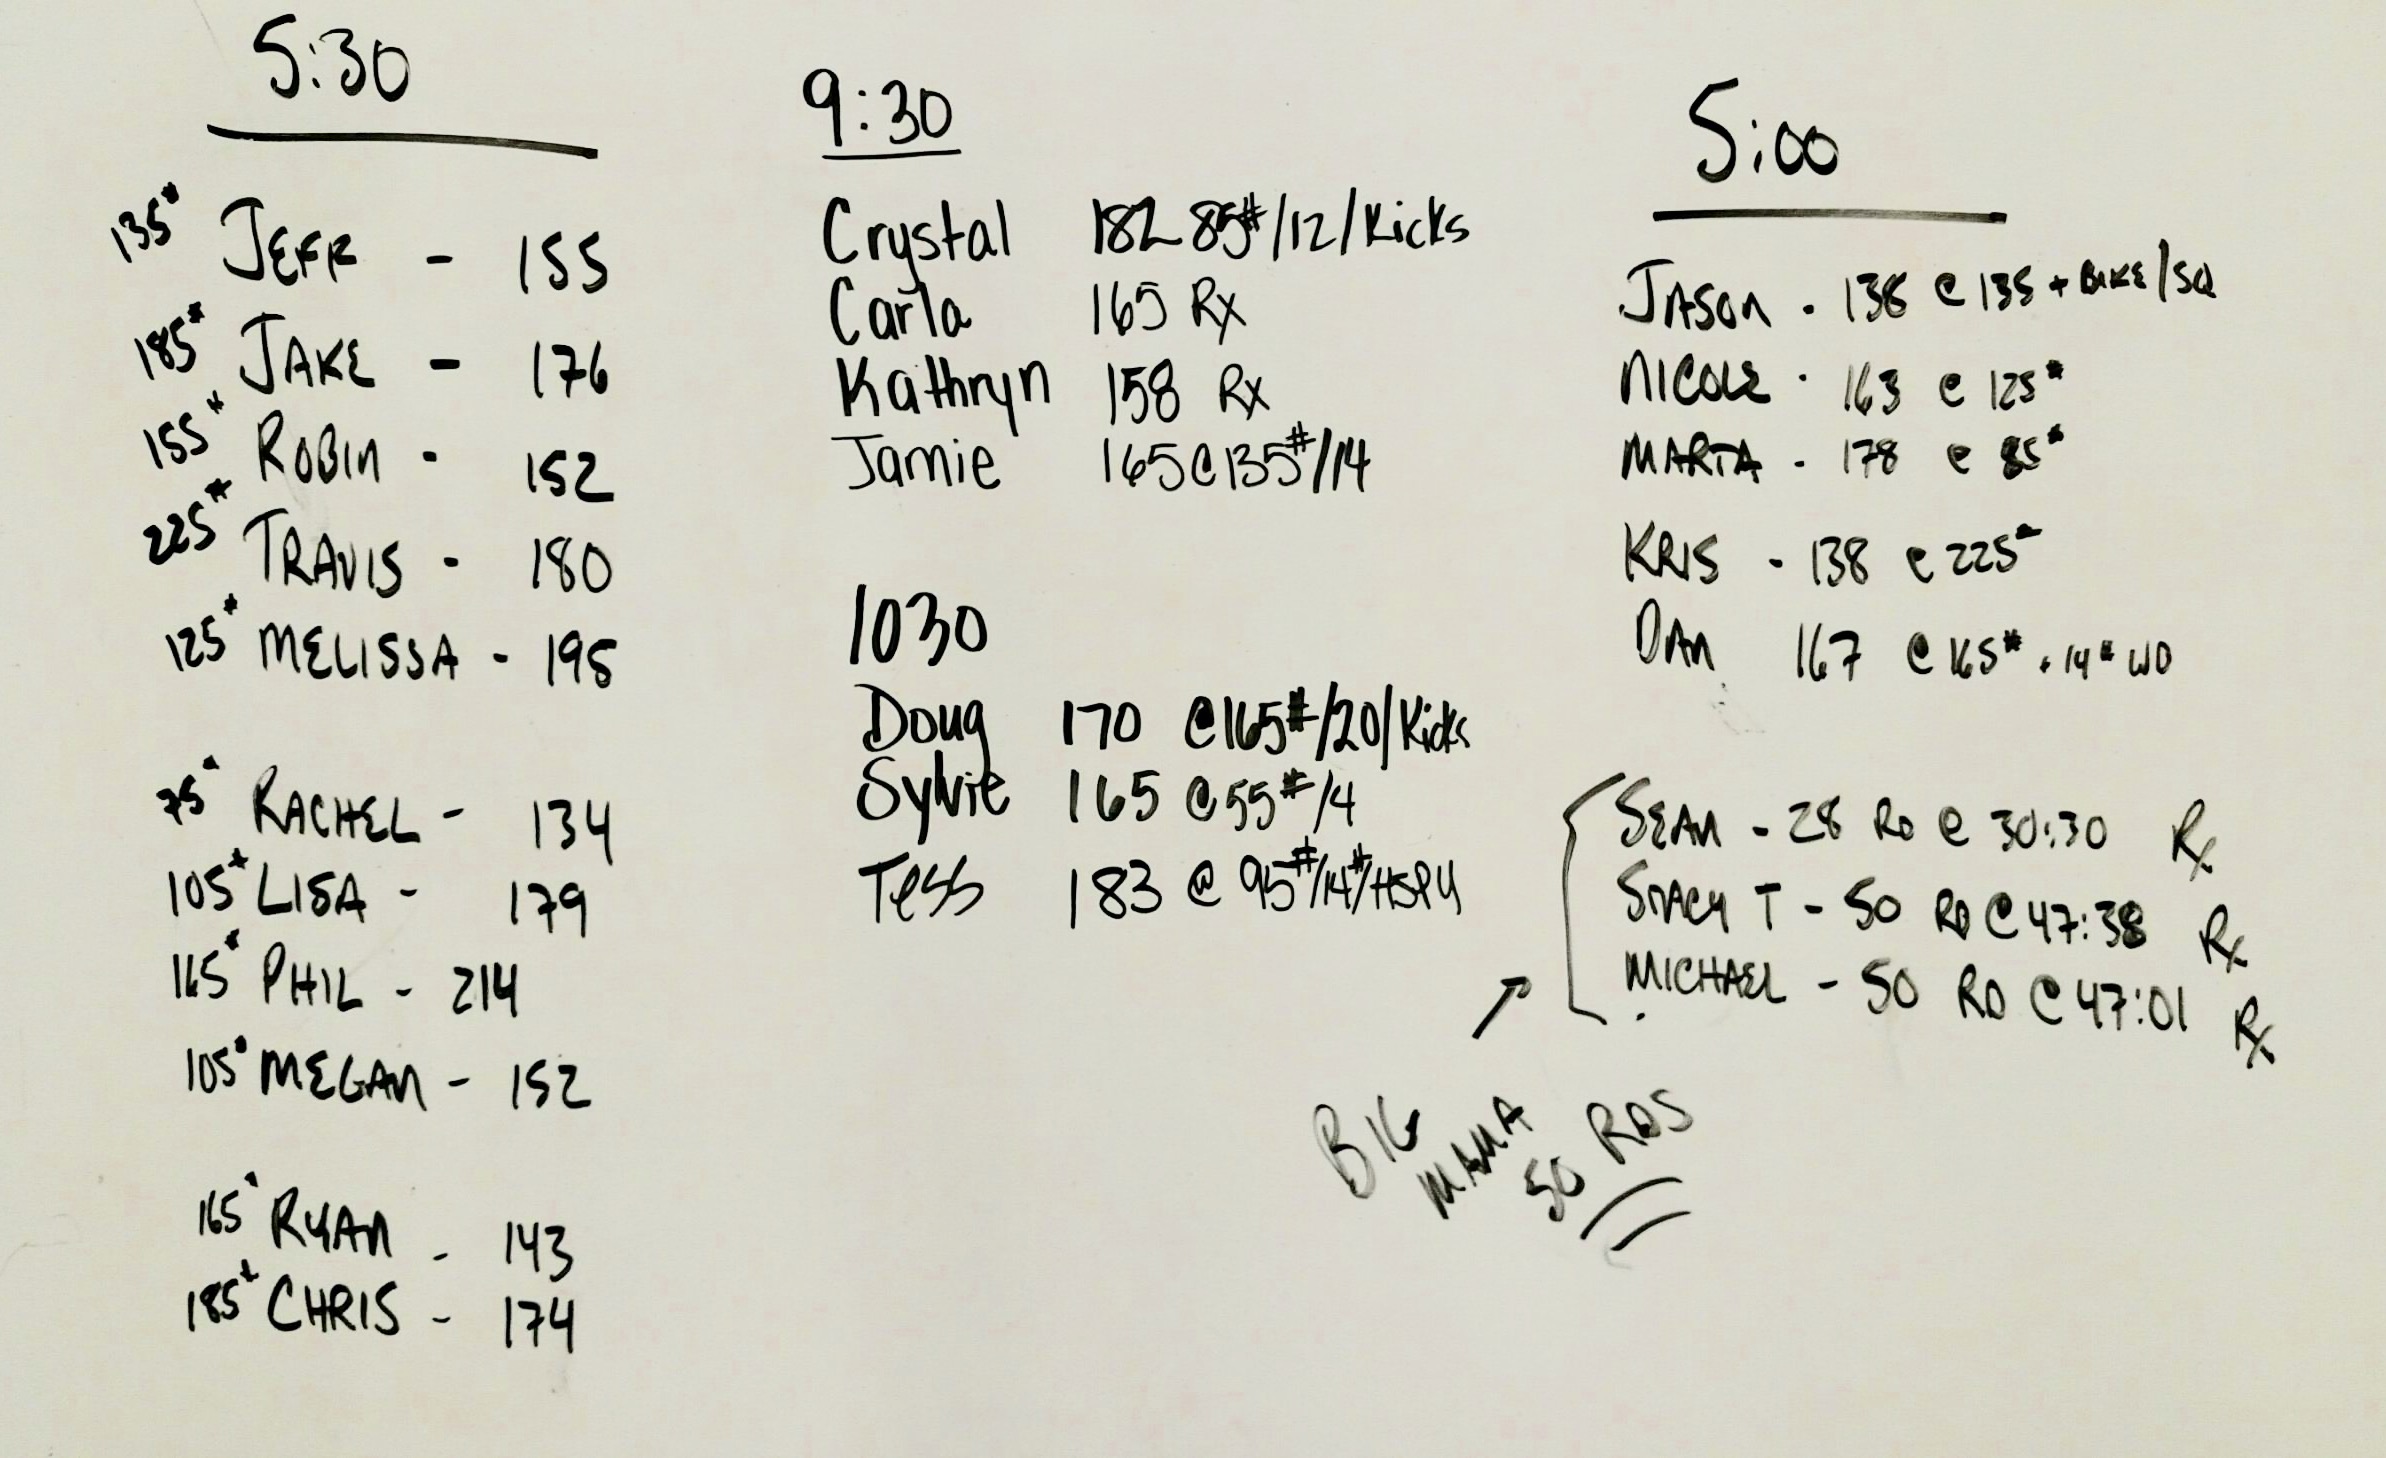 5:30
135# JEFF - 155
185# JAKE - 176
155# ROBIN - 152
225# TRAVIS - 180
125# MELISSA - 195
75# RACHEL - 134
105# LISA - 179
165# PHIL - 214
105# MEGAN - 152
165# RYAN - 143
185# CHRIS - 174
9:30
Crystal 182 85#/12/Kicks
Carla 165 Rx
Kathryn 158 Rx
Jamie 165@135#/14
1030
Doug 170 @165#/20/Kicks
Sylvie 165 @55#/4
Tess 183 @ 95#/14#/HSPU
5:00
JASON - 138 @ 135 + BIKE/SQ
NICOLE - 163 @ 125#
MARTA - 178 @ 85#
KRIS - 138 @ 225#
DAN 167 @ 165# + 14# WB
SEAN - 28 RD @ 30:30 Rx
STACY T - 50 RD @ 47:38 Rx
MICHAEL - 50 RD @ 47:01 Rx
BIG MAMA 50 RDS